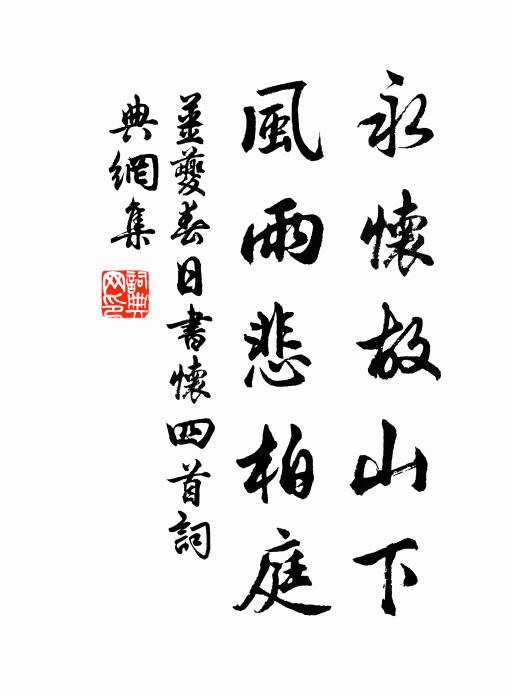 永懷故山下
風雨悲柏庭
姜夔春日書懷四首詞
典網集
詞典網印